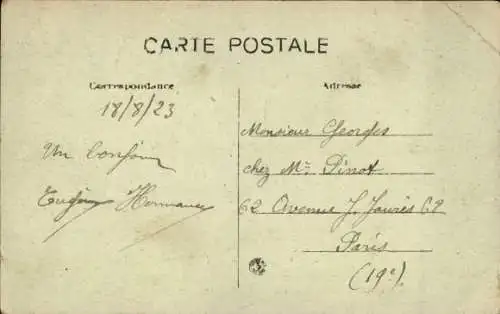 CARTE POSTALE
Correspondance
18/8/23
Un bonjour
Eugène Hermann
Adresse
Monsieur Georges
chez Mr. Pinot
62 Avenue J. Jaurès 62
Paris
(19e)